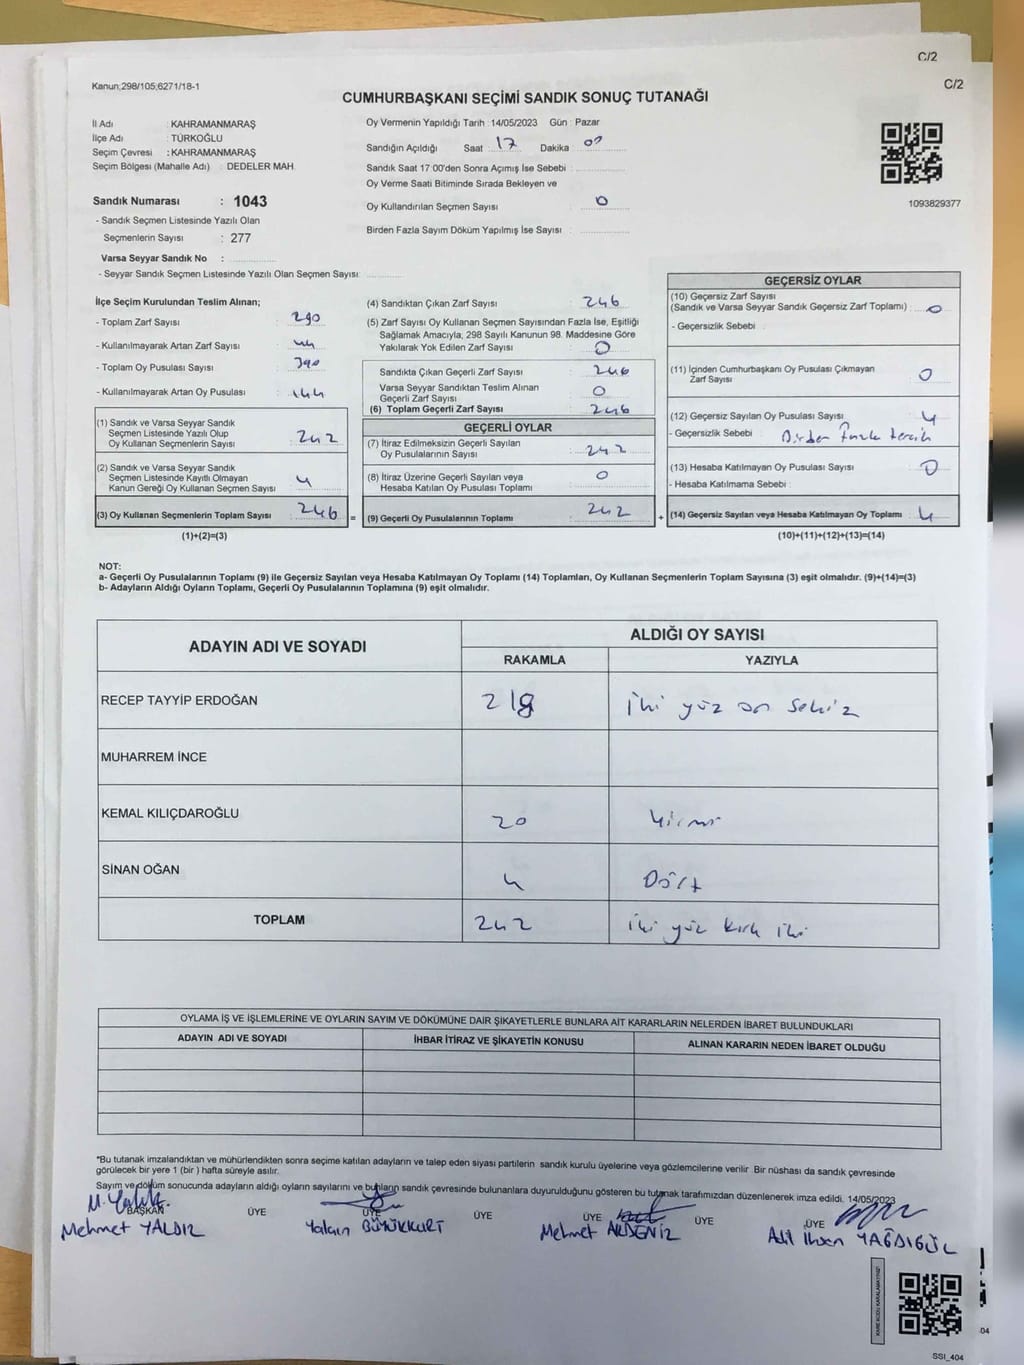 C/2
C/2
Kanun;298/105;6271/18-1
CUMHURBAŞKANI SEÇİMİ SANDIK SONUÇ TUTANAĞI
İl Adı : KAHRAMANMARAŞ
İlçe Adı : TÜRKOĞLU
Seçim Çevresi : KAHRAMANMARAŞ
Seçim Bölgesi (Mahalle Adı) : DEDELER MAH.
Oy Vermenin Yapıldığı Tarih :14/05/2023 Gün : Pazar
Sandığın Açıldığı Saat : 17 Dakika : 00
Sandık Saat 17 00'den Sonra Açımış İse Sebebi :
Oy Verme Saati Bitiminde Sırada Bekleyen ve
Oy Kullandırılan Seçmen Sayısı : 0
Birden Fazla Sayım Döküm Yapılmış İse Sayısı :
1093829377
Sandık Numarası : 1043
- Sandık Seçmen Listesinde Yazılı Olan
Seçmenlerin Sayısı : 277
Varsa Seyyar Sandık No :
- Seyyar Sandık Seçmen Listesinde Yazılı Olan Seçmen Sayısı:
İlçe Seçim Kurulundan Teslim Alınan;
- Toplam Zarf Sayısı : 290
- Kullanılmayarak Artan Zarf Sayısı : 44
- Toplam Oy Pusulası Sayısı : 390
- Kullanılmayarak Artan Oy Pusulası : 144
(1) Sandık ve Varsa Seyyar Sandık
Seçmen Listesinde Yazılı Olup
Oy Kullanan Seçmenlerin Sayısı : 242
(2) Sandık ve Varsa Seyyar Sandık
Seçmen Listesinde Kayıtlı Olmayan
Kanun Gereği Oy Kullanan Seçmen Sayısı : 4
(3) Oy Kullanan Seçmenlerin Toplam Sayısı : 246
(1)+(2)=(3)
=
(4) Sandıktan Çıkan Zarf Sayısı : 246
(5) Zarf Sayısı Oy Kullanan Seçmen Sayısından Fazla İse, Eşitliği
Sağlamak Amacıyla, 298 Sayılı Kanunun 98. Maddesine Göre
Yakılarak Yok Edilen Zarf Sayısı : 0
Sandıkta Çıkan Geçerli Zarf Sayısı : 246
Varsa Seyyar Sandıktan Teslim Alınan
Geçerli Zarf Sayısı : 0
(6) Toplam Geçerli Zarf Sayısı : 246
GEÇERLİ OYLAR
(7) İtiraz Edilmeksizin Geçerli Sayılan
Oy Pusulalarının Sayısı : 242
(8) İtiraz Üzerine Geçerli Sayılan veya
Hesaba Katılan Oy Pusulası Toplamı : 0
(9) Geçerli Oy Pusulalarının Toplamı : 242
+
GEÇERSİZ OYLAR
(10) Geçersiz Zarf Sayısı
(Sandık ve Varsa Seyyar Sandık Geçersiz Zarf Toplamı) : 0
- Geçersizlik Sebebi :
(11) İçinden Cumhurbaşkanı Oy Pusulası Çıkmayan
Zarf Sayısı : 0
(12) Geçersiz Sayılan Oy Pusulası Sayısı : 4
- Geçersizlik Sebebi : Birden fazla tercih
(13) Hesaba Katılmayan Oy Pusulası Sayısı : 0
- Hesaba Katılmama Sebebi :
(14) Geçersiz Sayılan veya Hesaba Katılmayan Oy Toplamı : 4
(10)+(11)+(12)+(13)=(14)
NOT:
a- Geçerli Oy Pusulalarının Toplamı (9) ile Geçersiz Sayılan veya Hesaba Katılmayan Oy Toplamı (14) Toplamları, Oy Kullanan Seçmenlerin Toplam Sayısına (3) eşit olmalıdır. (9)+(14)=(3)
b- Adayların Aldığı Oyların Toplamı, Geçerli Oy Pusulalarının Toplamına (9) eşit olmalıdır.
ADAYIN ADI VE SOYADI ALDIĞI OY SAYISI
RAKAMLA YAZIYLA
RECEP TAYYİP ERDOĞAN 218 iki yüz on sekiz
MUHARREM İNCE
KEMAL KILIÇDAROĞLU 20 Yirmi
SİNAN OĞAN 4 Dört
TOPLAM 242 iki yüz kırk iki
OYLAMA İŞ VE İŞLEMLERİNE VE OYLARIN SAYIM VE DÖKÜMÜNE DAİR ŞİKAYETLERLE BUNLARA AİT KARARLARIN NELERDEN İBARET BULUNDUKLARI
ADAYIN ADI VE SOYADI İHBAR İTİRAZ VE ŞİKAYETİN KONUSU ALINAN KARARIN NEDEN İBARET OLDUĞU
*Bu tutanak imzalandıktan ve mühürlendikten sonra seçime katılan adayların ve talep eden siyasi partilerin sandık kurulu üyelerine veya gözlemcilerine verilir. Bir nüshası da sandık çevresinde
görülecek bir yere 1 (bir ) hafta süreyle asılır.
Sayım ve döküm sonucunda adayların aldığı oyların sayılarını ve bunların sandık çevresinde bulunanlara duyurulduğunu gösteren bu tutanak tarafımızdan düzenlenerek imza edildi. 14/05/2023
BAŞKAN ÜYE ÜYE ÜYE ÜYE ÜYE ÜYE
Mehmet YALDIZ Yalçın BÜYÜKKURT Mehmet AKDENİZ Adil İhsan YAĞDIGÜL
KARE KODU KARALAMAYINIZ!
SSI_404